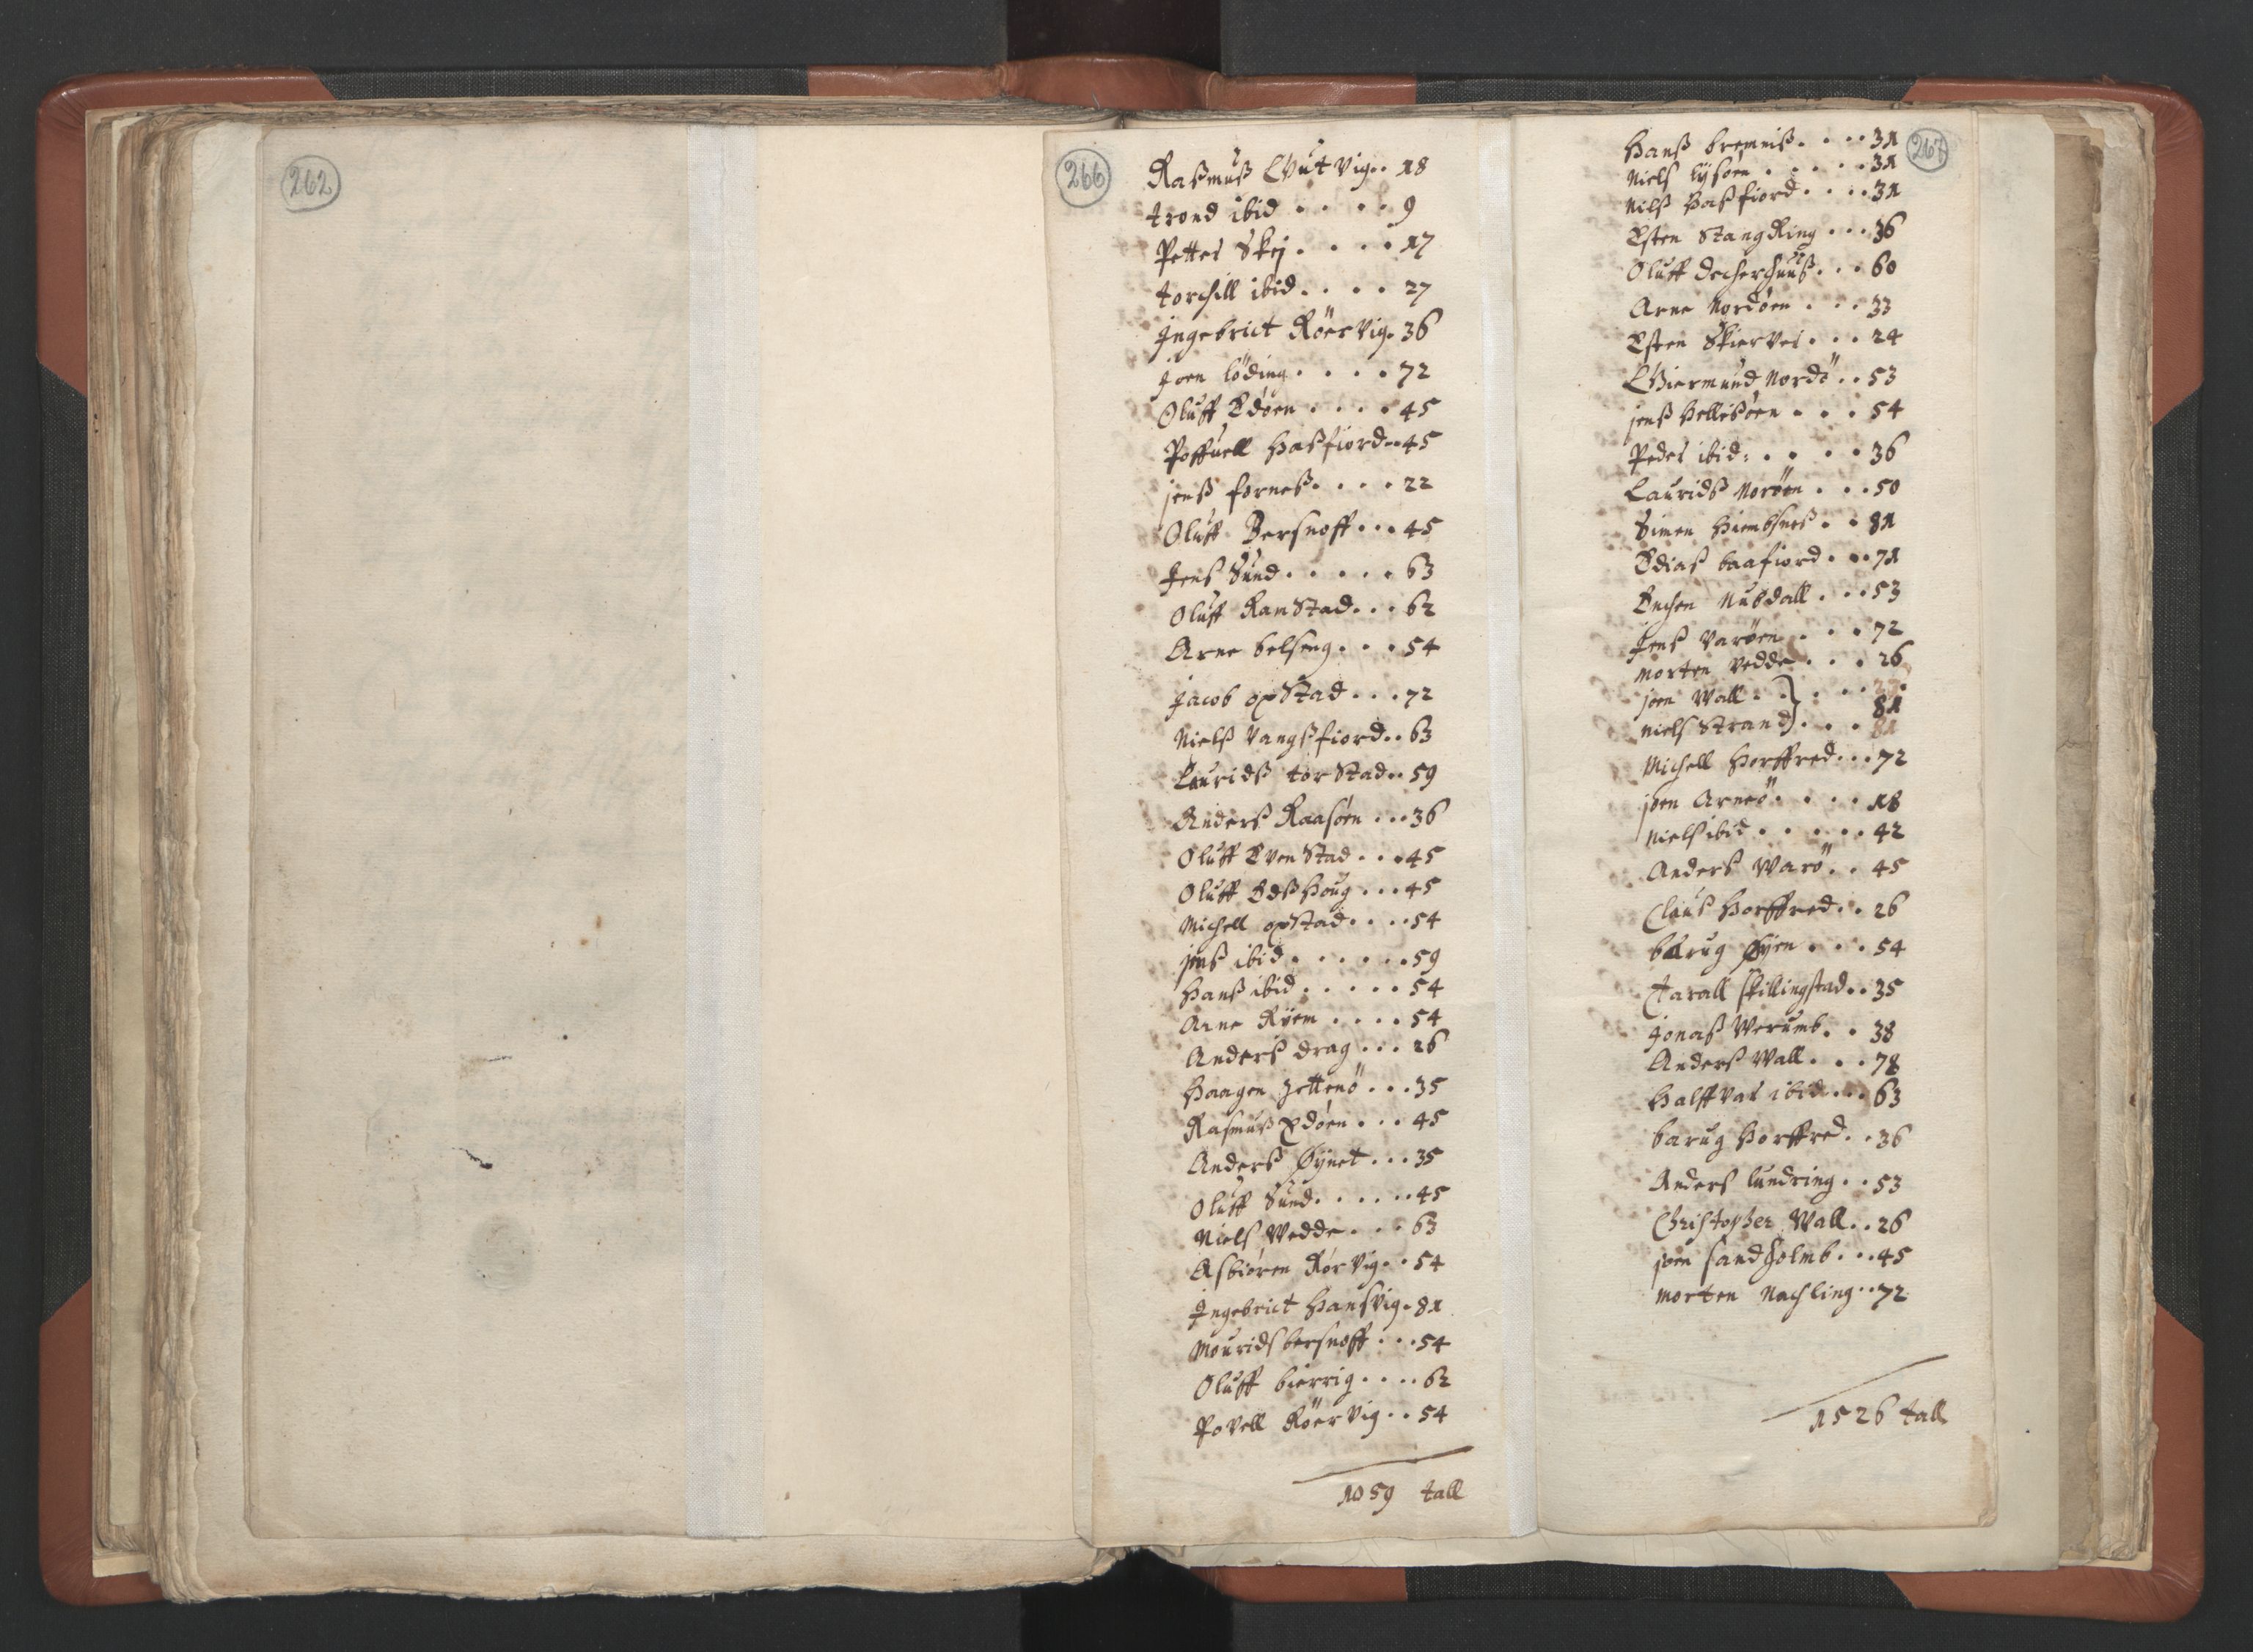 262
266
Raßmuß Gutvig.. 18
trond ibid . . . . 9
Petter Skej . . . . 17
torchill ibid . . . . 27
Ingebrict Röervig. 36
Joen löding . . . . 72
Oluff Edöen . . . . 45
Poffuell Haßfiord .. 45
jenß forneß . . . . 22
Oluff Bersnoff . . . 45
Jenß Sund . . . . . 63
Oluff RamStad . . . 62
Arne belseng . . . 54
Jacob opStad . . . 72
Nielß Vangßfiord .. 63
Lauridß torStad .. 59
Anderß Raasöen . . . 36
Oluff EvenStad . . . 45
Oluff Edßhoug . . . 45
Michell opStad . . . . 54
jenß ibid . . . . . . 59
Hanß ibid . . . . . 54
Arne Ryem . . . . 54
Anderß drag . . . 26
Haagen Jettenö . . . 35
Rasmuß Edöen . . . 45
Anderß Øynet . . . 35
Oluff Sund . . . . . . 45
Niels Wedde . . . 63
Asbiören Rörvig . . 54
Ingebrict Hansvig . 81
Mouridsbersnoff . . . 54
Oluff bierrig . . . . 62
Povell Röervig . . 54
1059 tall
267
Hanß bremniß . . . . 31
Niels lysöen . . . . . 31
Nilß Haßfiord . . . . 31
Esten StangRing . . . 36
Oluff decherhuuß . . . 60
Arne Nordöen . . . 33
Esten Skierver . . . 24
Giermund Nordö . . 53
jenß Hellesöen . . . 54
Peder ibid: . . . . 36
Lauridß Noröen . . . 50
Simen Hiembsneß . . 81
Ediaß baafiord . . . 71
Enchen Nubdall . . . 53
Jenß Varöen . . . 72
Morten Vedde . . . 26
joen Wall . . } . . .
81
niels Strand } . . . 81
Michell Horffred . . . 72
joen Arneö . . . . 18
Niels ibid . . . . . . 42
Anderß Warö . . 45
Clauß Horffred . . 26
barug Øyen . . . 54
tarall skillingstad . . 35
Jonaß Werumb . . 38
Anderß Wall . . . 78
Halffvar ibid . . . 63
barug Horffred . . 36
Anders lundring . . 53
Christopher Wall . . 26
joen sandholmb . . . 45
Morten Nachling . . 72
1526 tall